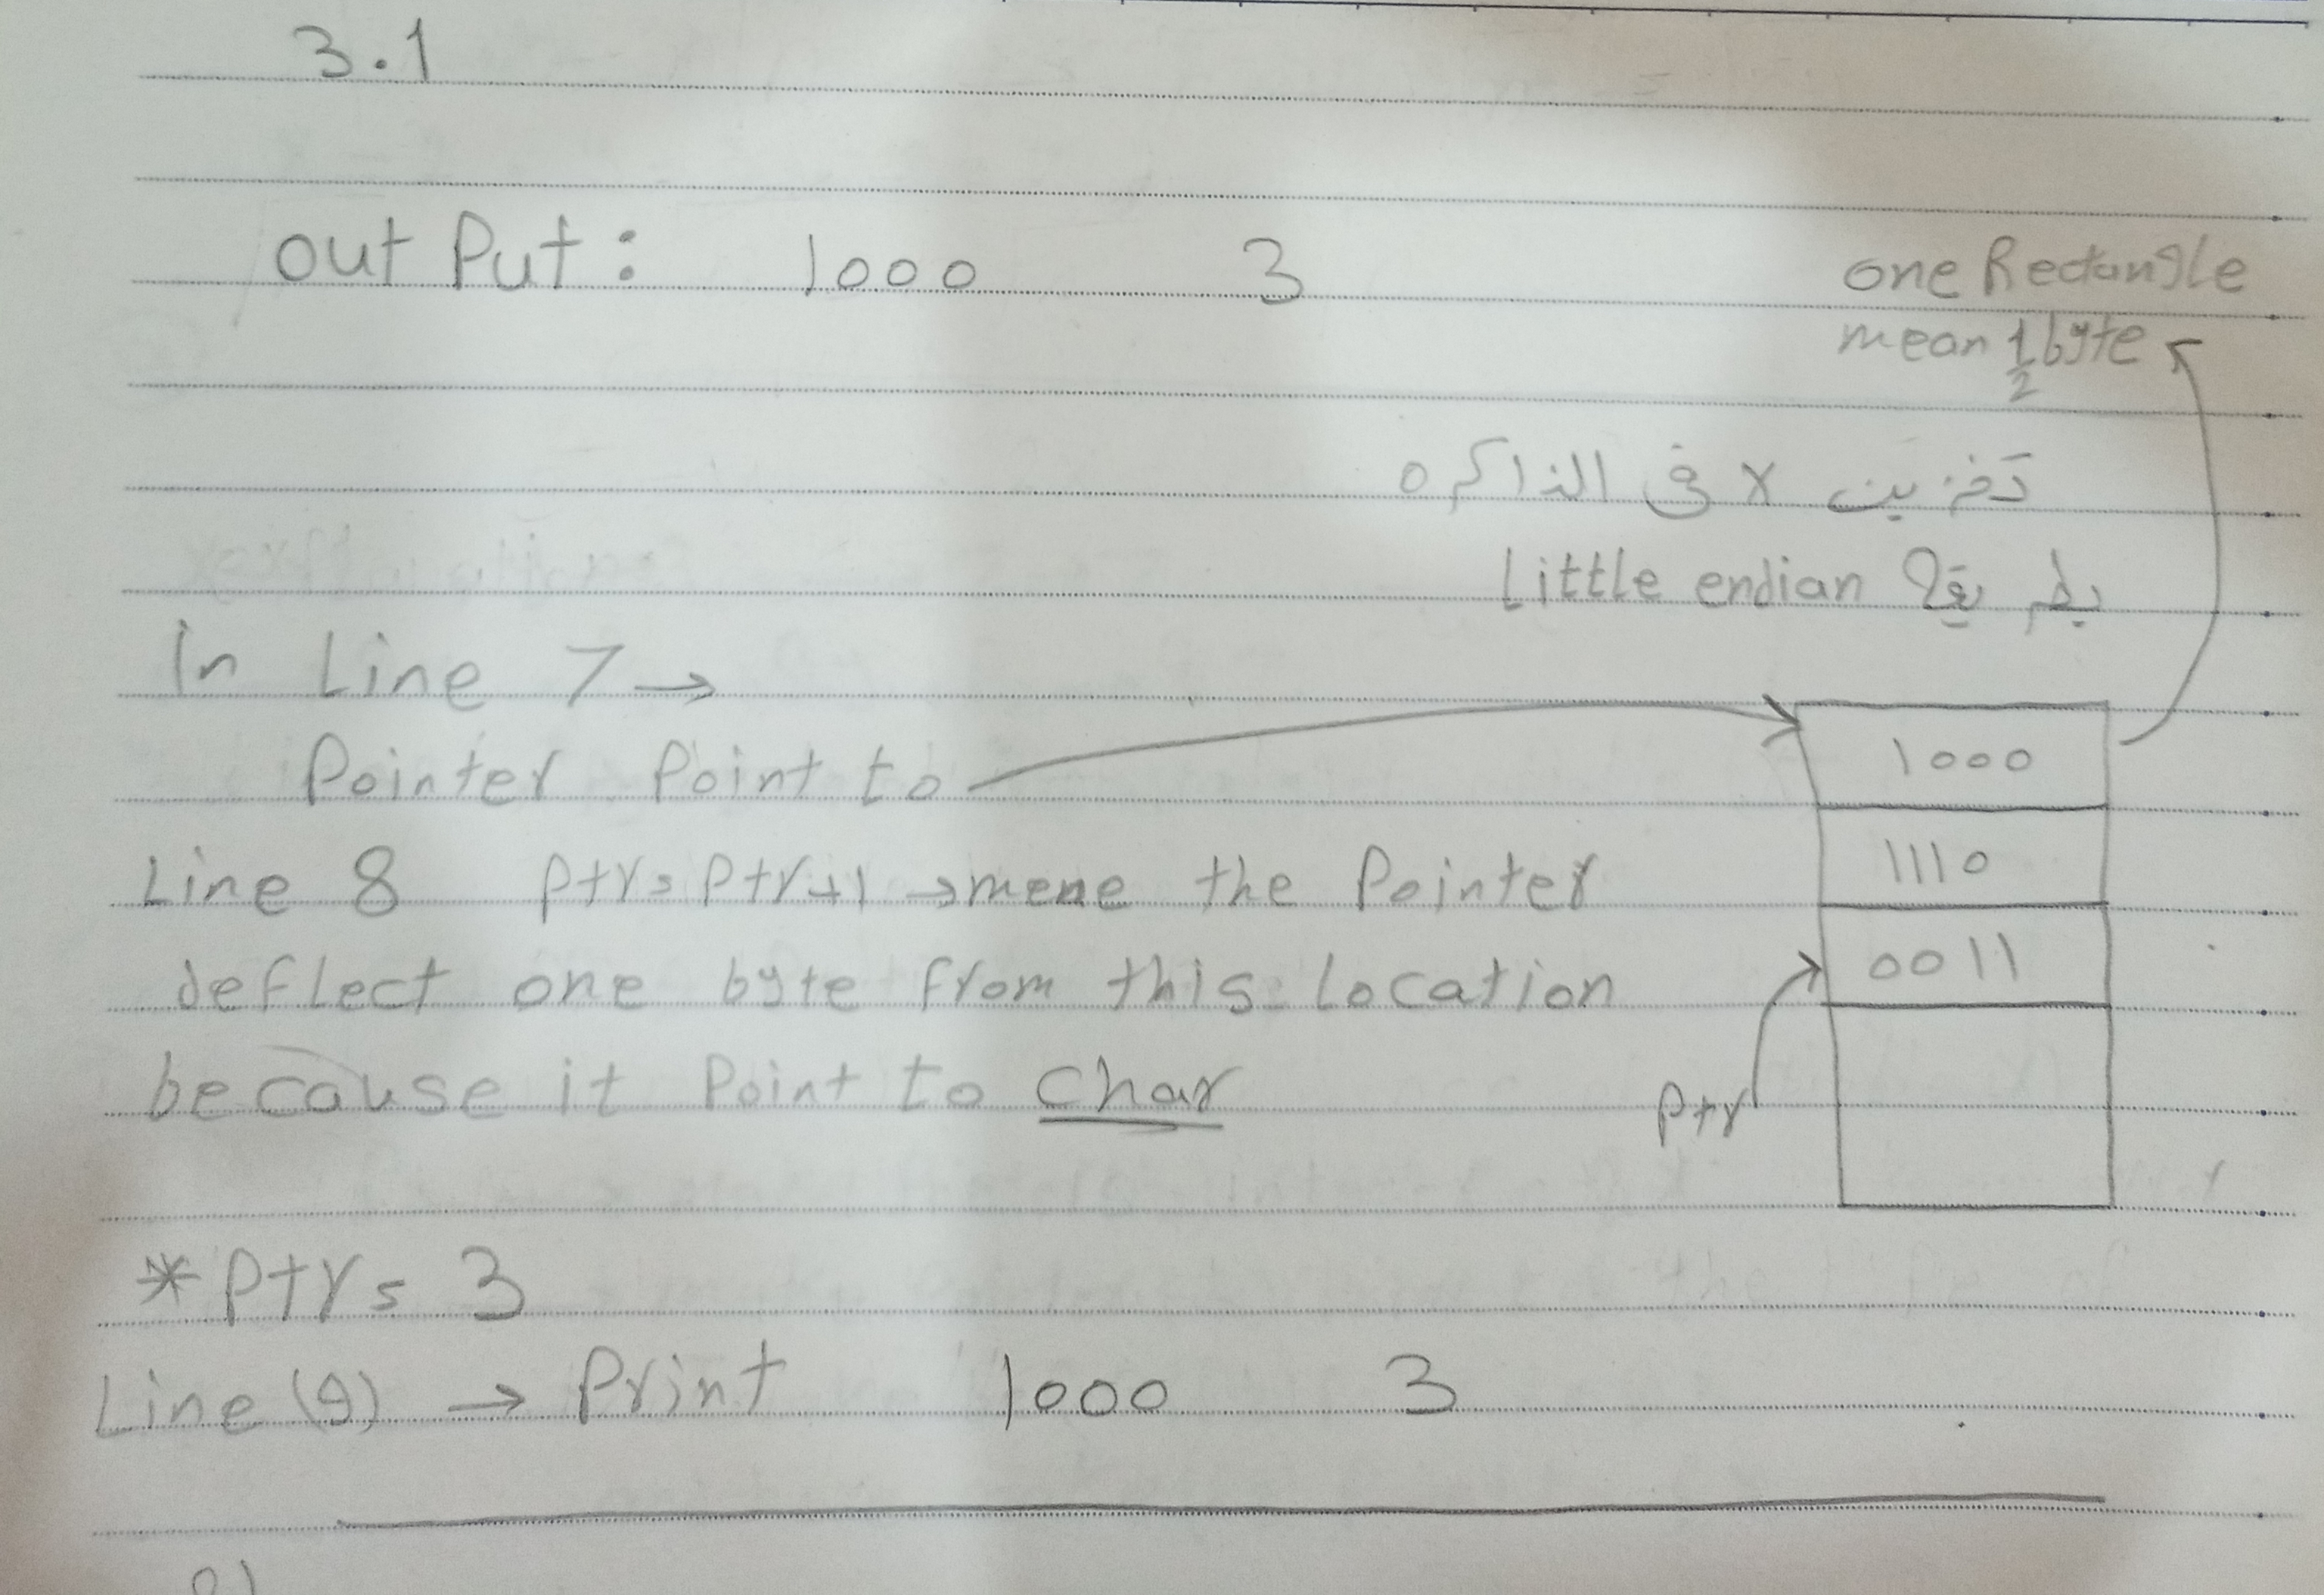 3.1
out Put: 1000 3
one Rectangle
mean 1/2 byte
تخزين x في الذاكره
بطريقة Little endian
In Line 7 →
Pointer Point to
1000
Line 8 Ptr = Ptr+1 → mene the Pointer
1110
deflect one byte from this location
0011
because it Point to char
Ptr
*Ptr = 3
Line (9) → Print 1000 3